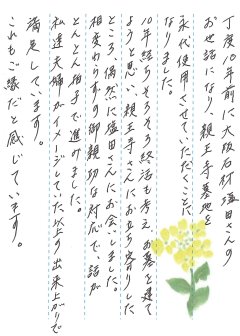 丁度10年前に大阪石材塩田さんの
お世話になり、親王寺墓地を
永代使用させていただくことに
なりました。
10年経ちそろそろ終活も考え、お墓を建て
ようと思い、親王寺さんにお立ち寄りした
ところ、偶然に塩田さんにお会いしました。
相変わらずの御親切な対応で、話が
とんとん拍子で進みました。
私達夫婦がイメージしていた以上の出来上がりで
満足しています。
これもご縁だと感じています。